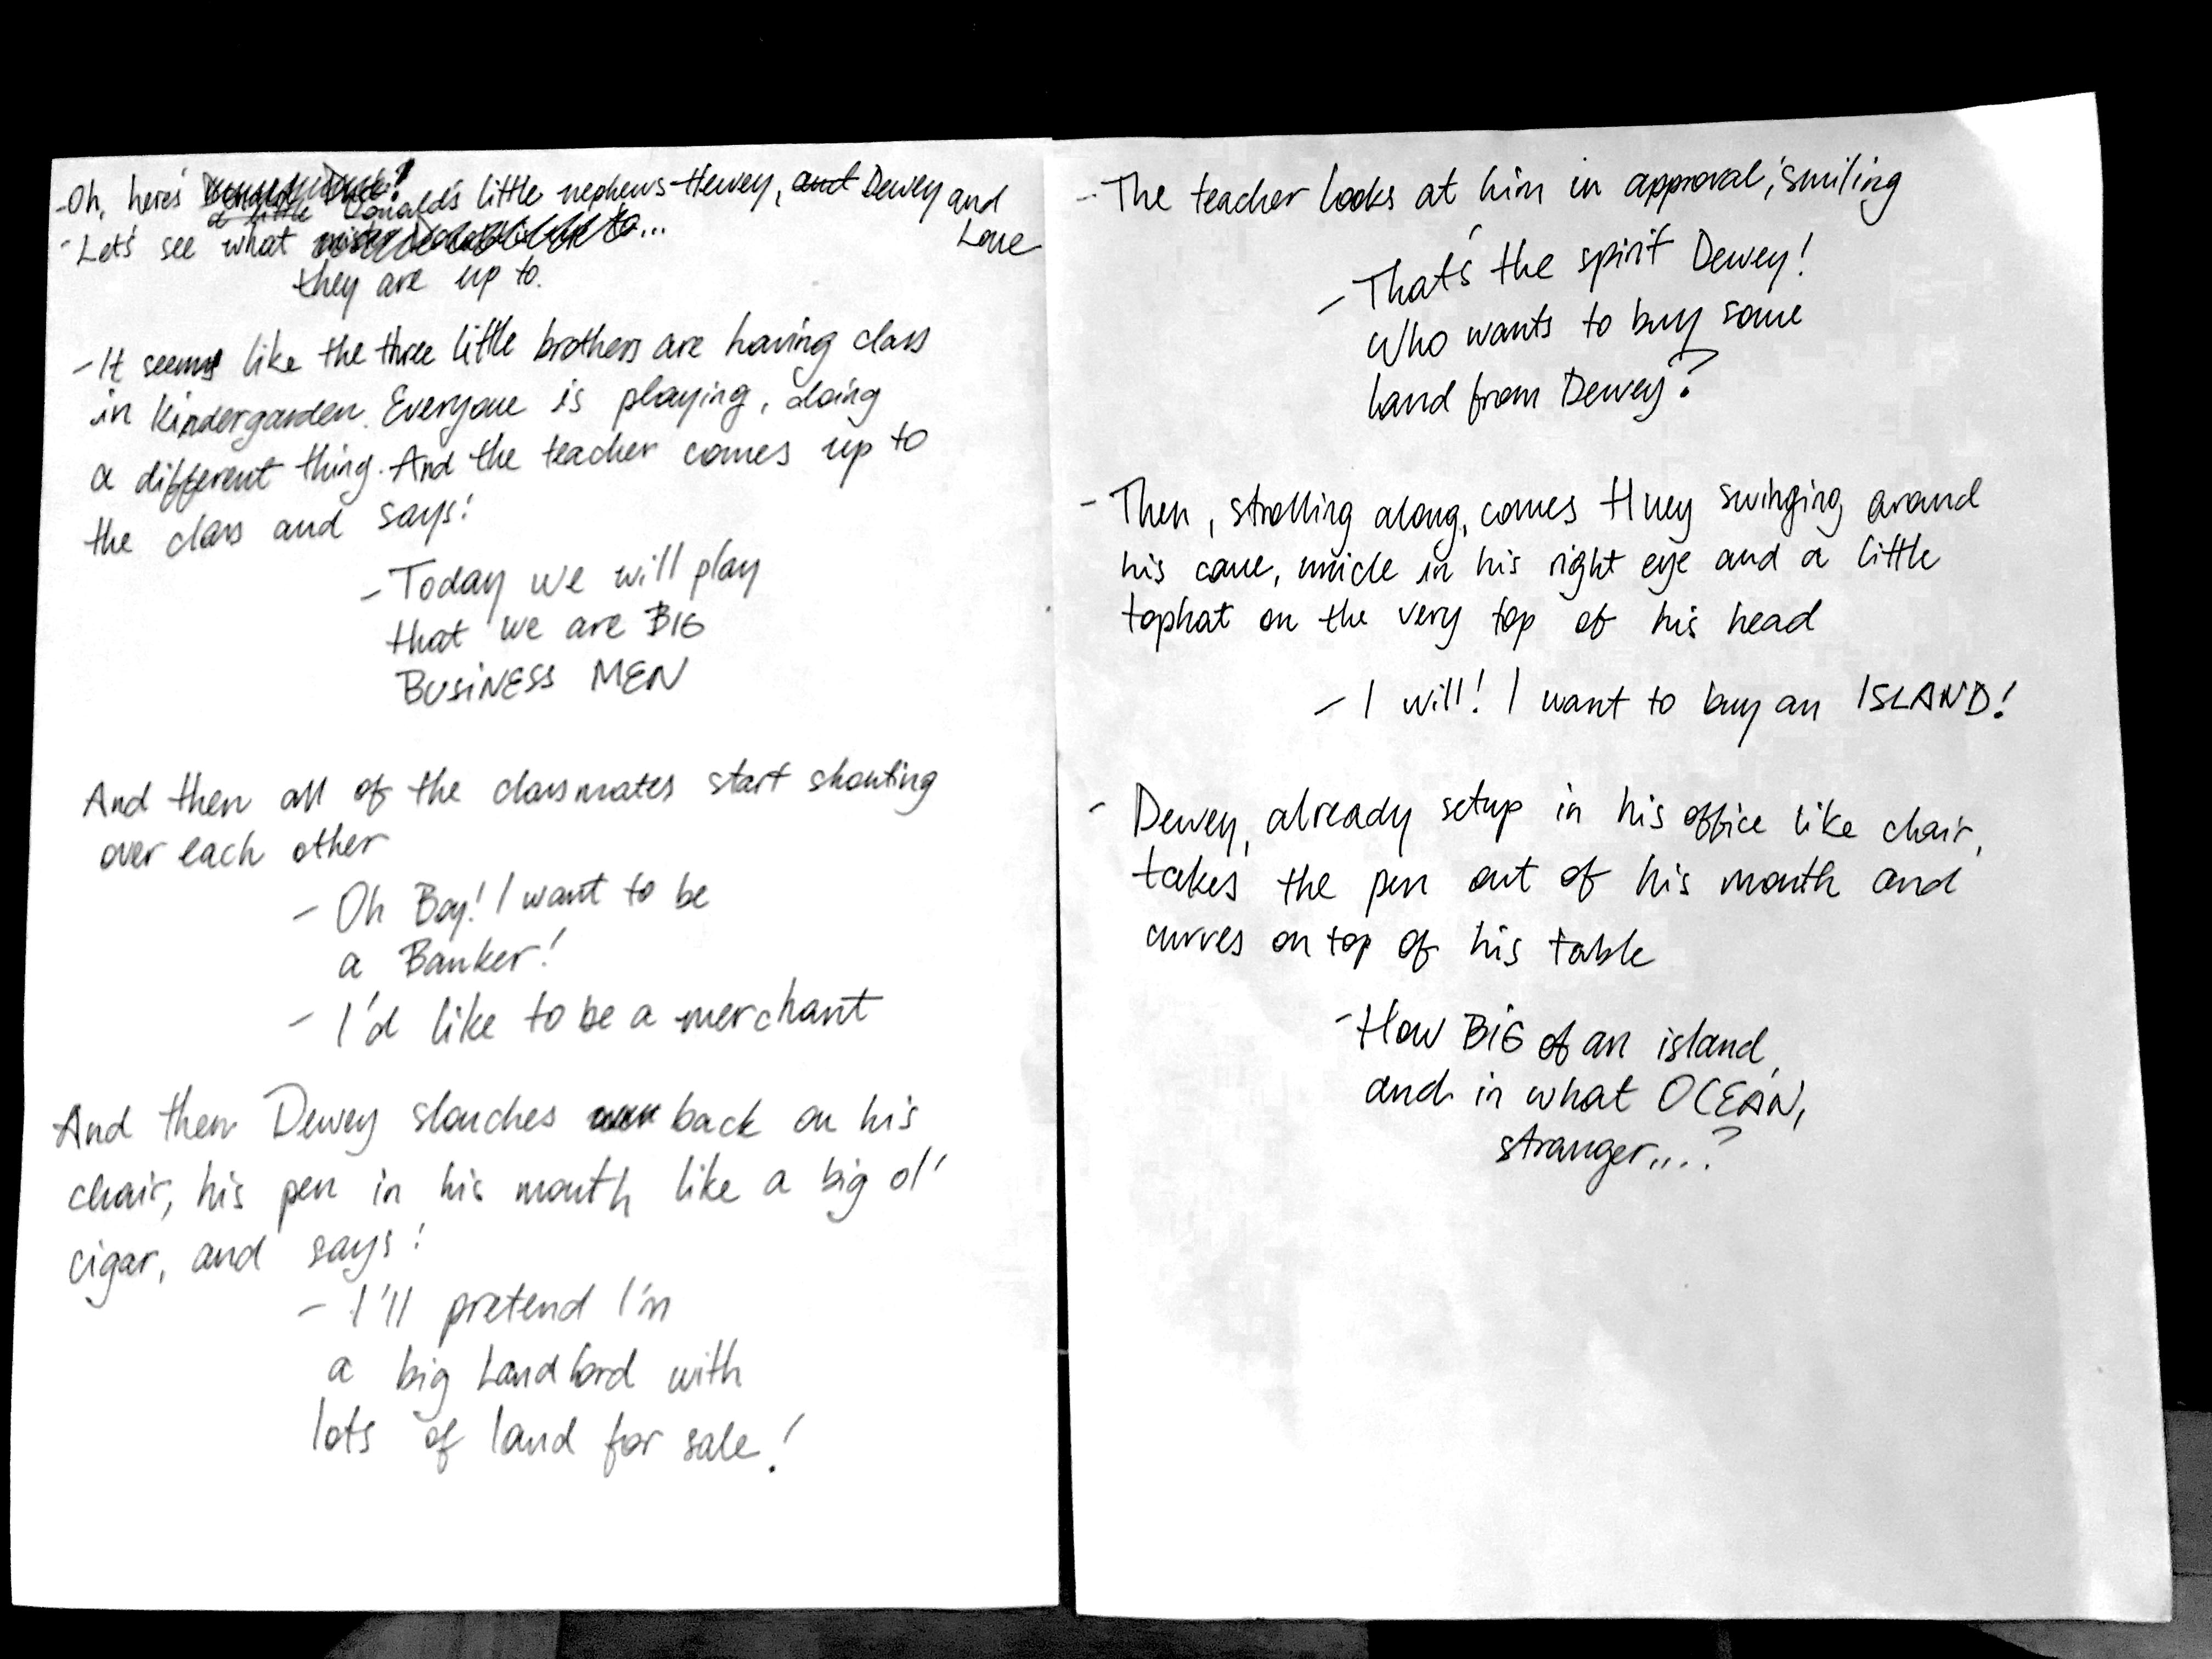 - Oh, here's Donald's little nephews Hewey, and Dewey and
Loue
- Let's see what
they are up to.
- It seems like the three little brothers are having class
in kindergarden. Everyone is playing, doing
a different thing. And the teacher comes up to
the class and says:
- Today we will play
that we are BIG
BUSINESS MEN
And then all of the classmates start shouting
over each other
- Oh Boy! I want to be
a Banker!
- I'd like to be a merchant
And then Dewey slouches back on his
chair, his pen in his mouth like a big ol'
cigar, and says:
- I'll pretend I'm
a big Landlord with
lots of land for sale!
- The teacher looks at him in approval, smiling
- That's the spirit Dewey!
Who wants to buy some
land from Dewey?
- Then, strolling along, comes Huey swinging around
his cane, in his right eye and a little
tophat on the very top of his head
- I will! I want to buy an ISLAND!
- Dewey, already setup in his office like chair,
takes the pen out of his mouth and
curves on top of his table
- How BIG of an island,
and in what OCEAN,
stranger....?